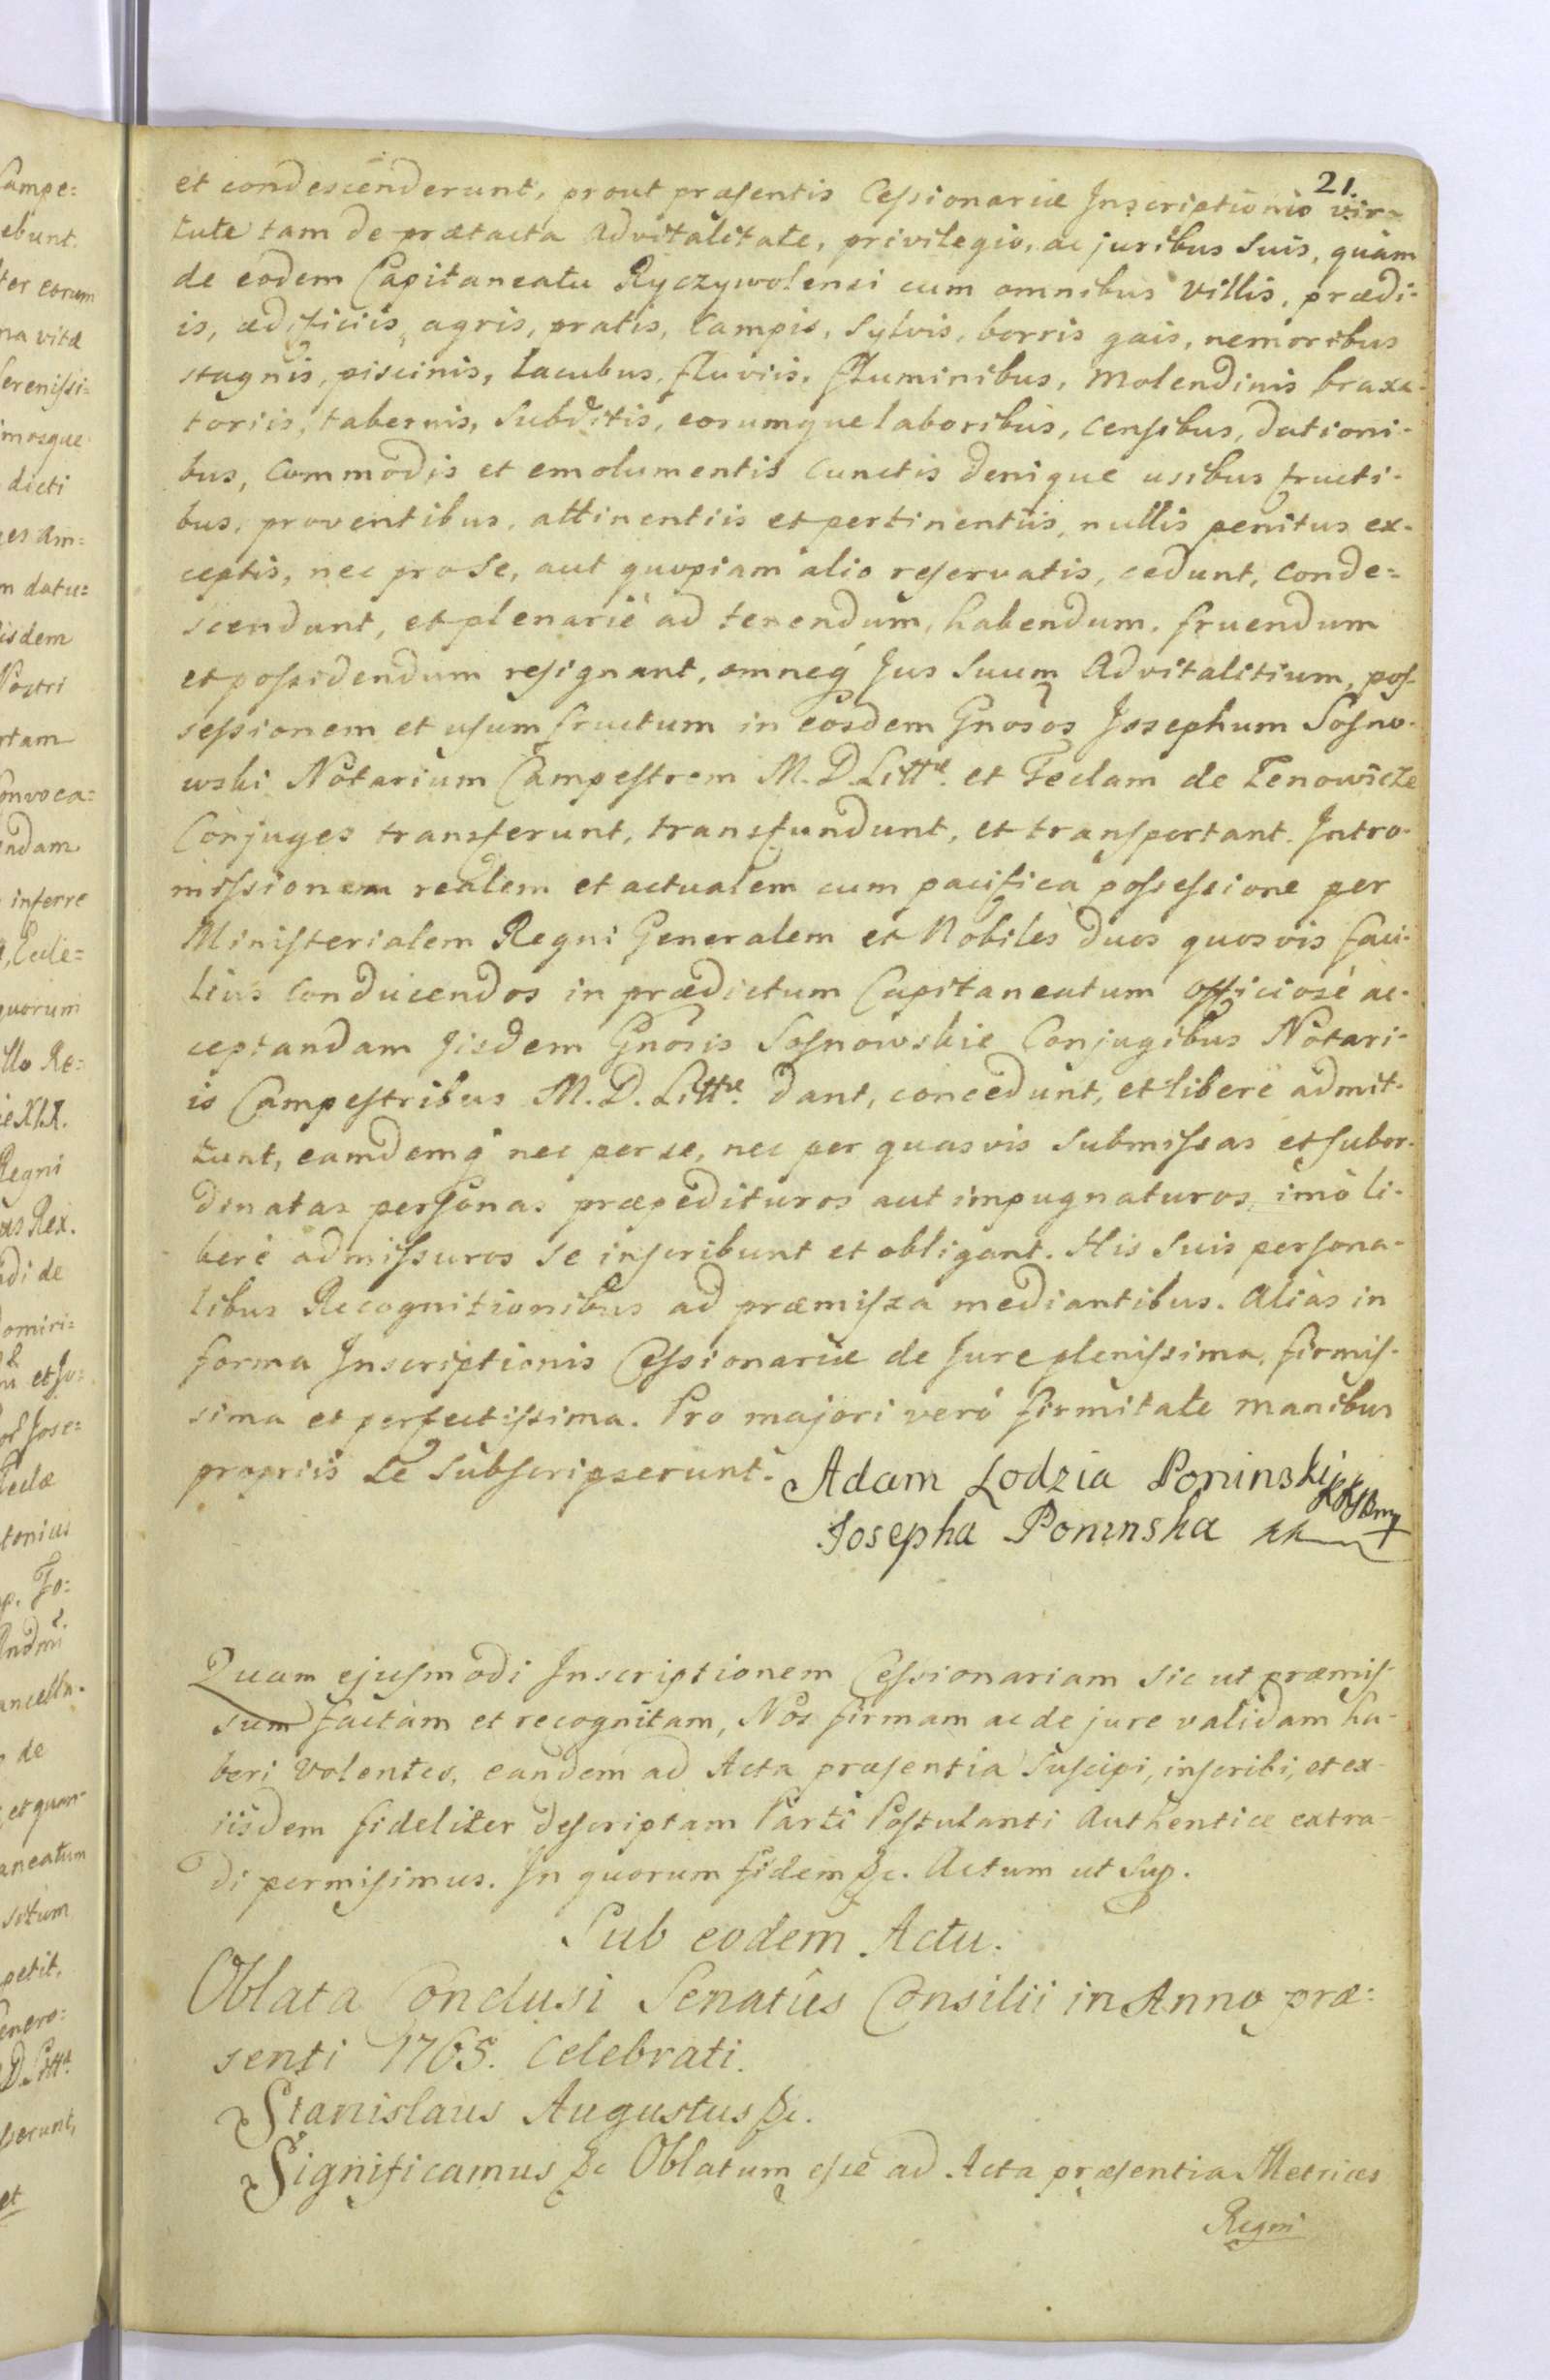 21.
et condescenderunt, prout præsentis Cessionariæ Inscriptionis vir-
tute tam de prætacta Advitalitate, privilegio, ac juribus Suis, quàm
de eodem Capitaneatu Ryczywolensi cum omnibus villis, prædi-
is, ædificiis, agris, pratis, Campis, Sylvis, borris gais, nemoribus
stagnis, piscinis, Lacubus, fluviis, fluminibus, Molendinis braxa-
toriis, tabernis, Subditis, eorumque laboribus, Censibus, dationi-
bus, Commodis et emolumentis Cunctis denique usibus fructi-
bus, proventibus, attinentiis et pertinentiis, nullis penitus ex-
ceptis, nec pro Se, aut quopiam alio reservatis, cedunt, Conde=
scendunt, et plenariè ad tenendum, habendum, fruendum
et possidendum resignant, omneq́ Jus Suum Advitalitium, pos-
sessionem et usum fructum in eosdem Gnosos Josephum Sosno-
wski Notarium Campestrem M. D. Littæ. et Teclam de Zenowicze
Conjuges transferunt, transfundunt, et transportant. Intro-
missionem realem et actualem cum pacifica possessione per
Ministerialem Regni Generalem et Nobiles duos quosvis faci-
liùs Conducendos in prædictum Capitaneatum officiosè ac-
ceptandam Jisdem Gnosis Sosnowskie Conjugibus Notari-
is Campestribus M. D. Littæ. dant, concedunt, et liberè admit-
tunt, eamdemq́ nec per se, nec per quasvis Submissas et subor-
dinatas personas præpedituros aut impugnaturos, imò li-
berè admissuros Se inscribunt et obligant. His Suis persona-
libus Recognitionibus ad præmissa mediantibus. Aliàs in
forma Inscriptionis Cessionariæ de Jure plenissima, firmis-
sima et perfectissima. Pro majori verò firmitate manibus
propriis Se Subscripserunt. Adam Lodzia Poninski
Josepha Poninska
Quam ejusmodi Inscriptionem Cessionariam sic ut præmis-
sum factam et recognitam, Nos firmam ac de jure validam ha-
beri Volentes, eandem ad Acta præsentia Suscipi, inscribi, et ex-
iisdem fideliter descriptam Parti Postulanti Authenticè extra-
di permisimus. In quorum fidem &c. Actum ut Sup.
Sub eodem Actu.
Oblata Conclusi Senatûs Consilii in Anno præ=
senti 1765. Celebrati.
Stanislaus Augustus &c.
Significamus &c Oblatum esse ad Acta præsentia Metrices
Regni